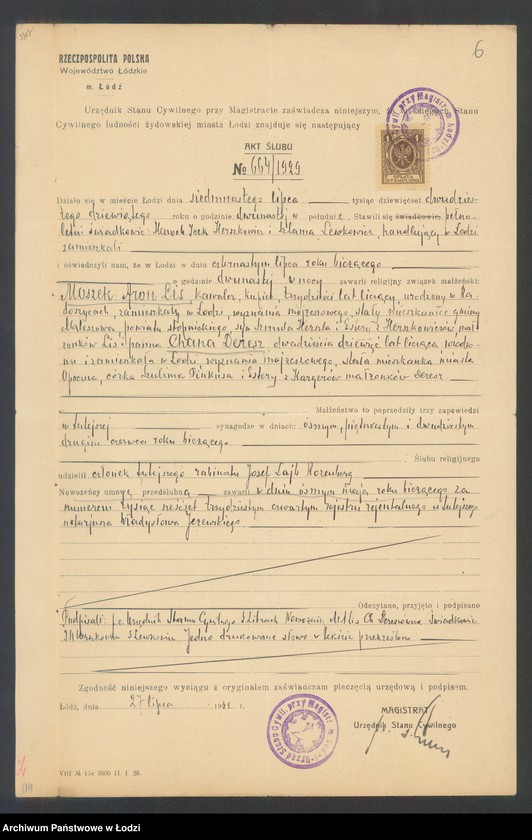 6
RZECZPOSPOLITA POLSKA
Województwo Łódzkie
m. Łódź
Urzędnik Stanu Cywilnego przy Magistracie zaświadcza niniejszym, Stanu
Cywilnego ludności żydowskiej miasta Łodzi znajduje się następujący
AKT ŚLUBU
№ 664/1929
Działo się w mieście Łodzi dnia siedmnastego lipca tysiąc dziewięćset dwudzies-
tego dziewiątego roku o godzinie dwunastej w południe. Stawili się świadkowie pełno-
letni świadkowie: Hersnkowicz i Szlama Lewkowicz, handlujący, w Łodzi
zamieszkali
i oświadczyli nam, że w Łodzi w dniu czternastym lipca roku bieżącego
o godzinie dwunastej w nocy zawarli religijny związek małżeński:
Moszek Aron Lis, kawaler, kupiec, trzydzieści lat liczący, urodzony w Ra-
doszycach, zamieszkały w Łodzi, wyznania mojżeszowego, stały mieszkaniec gminy
powiatu stopnickiego, syn Szmula Herszla i Estery z Herszkowiczów, mał-
żonków Lis i panna Chana Deresz dwadzieścia dziewięć lat licząca urodzo-
na i zamieszkała w Łodzi, wyznania mojżeszowego, stała mieszkanka miasta
Opoczna, córka Szulima Pinkusa i Estery z małżonków Deresz
Małżeństwo to poprzedziły trzy zapowiedzi
w tutejszej synagodze w dniach: ósmym, piętnastym i dwudziestym
drugim czerwca roku bieżącego
Ślubu religijnego
udzielił członek tutejszego rabinatu Josef Lajb
Nowożeńcy umowę przedślubną zawarli w dniu ósmym maja roku bieżącego za
numerem tysiąc sześćset trzydziestym czwartym rejestru rejentalnego u tutejszego
notarjusza Władysława Jeżewskiego
Odczytano, przyjęto i podpisano
Podpisali: p.o. Urzędnik Stanu Cywilnego Nowożeńcy: M. A. Lis Ch. Dereszówna Świadkowie:
Lewkowicz Jedno drukowane słowo w tekście przekreślono
Zgodność niniejszego wyciągu z oryginałem zaświadczam pieczęcią urzędową i podpisem.
Łódź, dnia 27 lipca 1931 r.
MAGISTRAT
Urzędnik Stanu Cywilnego
VIII № 15c 3000 11. I. 26.
Archiwum Państwowe w Łodzi